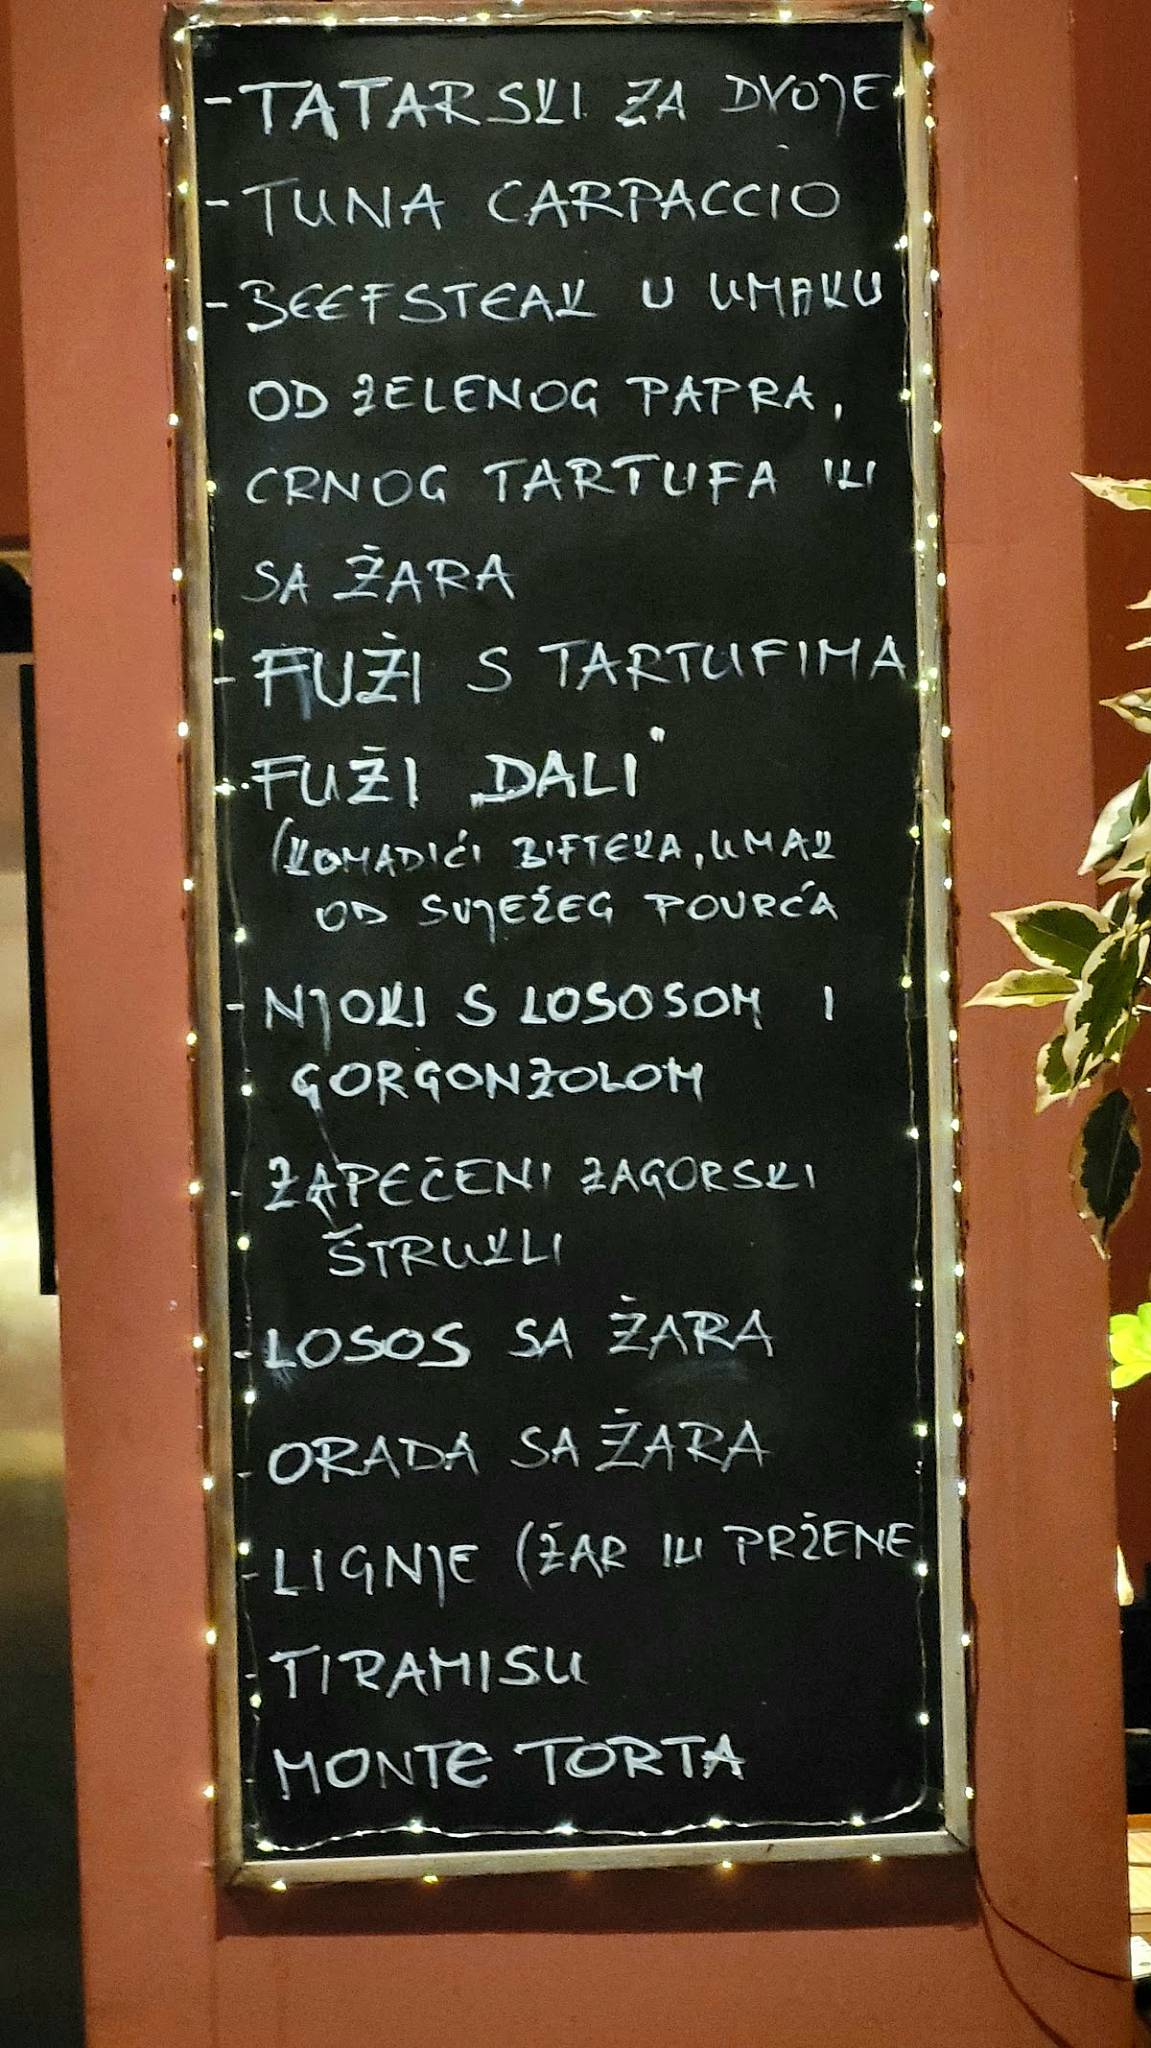 - TATARSKI ZA DVOJE
- TUNA CARPACCIO
- BEEFSTEAK U UMAKU
OD ZELENOG PAPRA,
CRNOG TARTUFA ILI
SA ŽARA
- FUŽI S TARTUFIMA
- FUŽI „DALI"
(KOMADIĆI BIFTEKA, UMAK
OD SVJEŽEG POVRĆA
- NJOKI S LOSOSOM I
GORGONZOLOM
- ZAPEČENI ZAGORSKI
ŠTRUKLI
- LOSOS SA ŽARA
- ORADA SA ŽARA
- LIGNJE (ŽAR ILI PRŽENE
- TIRAMISU
- MONTE TORTA